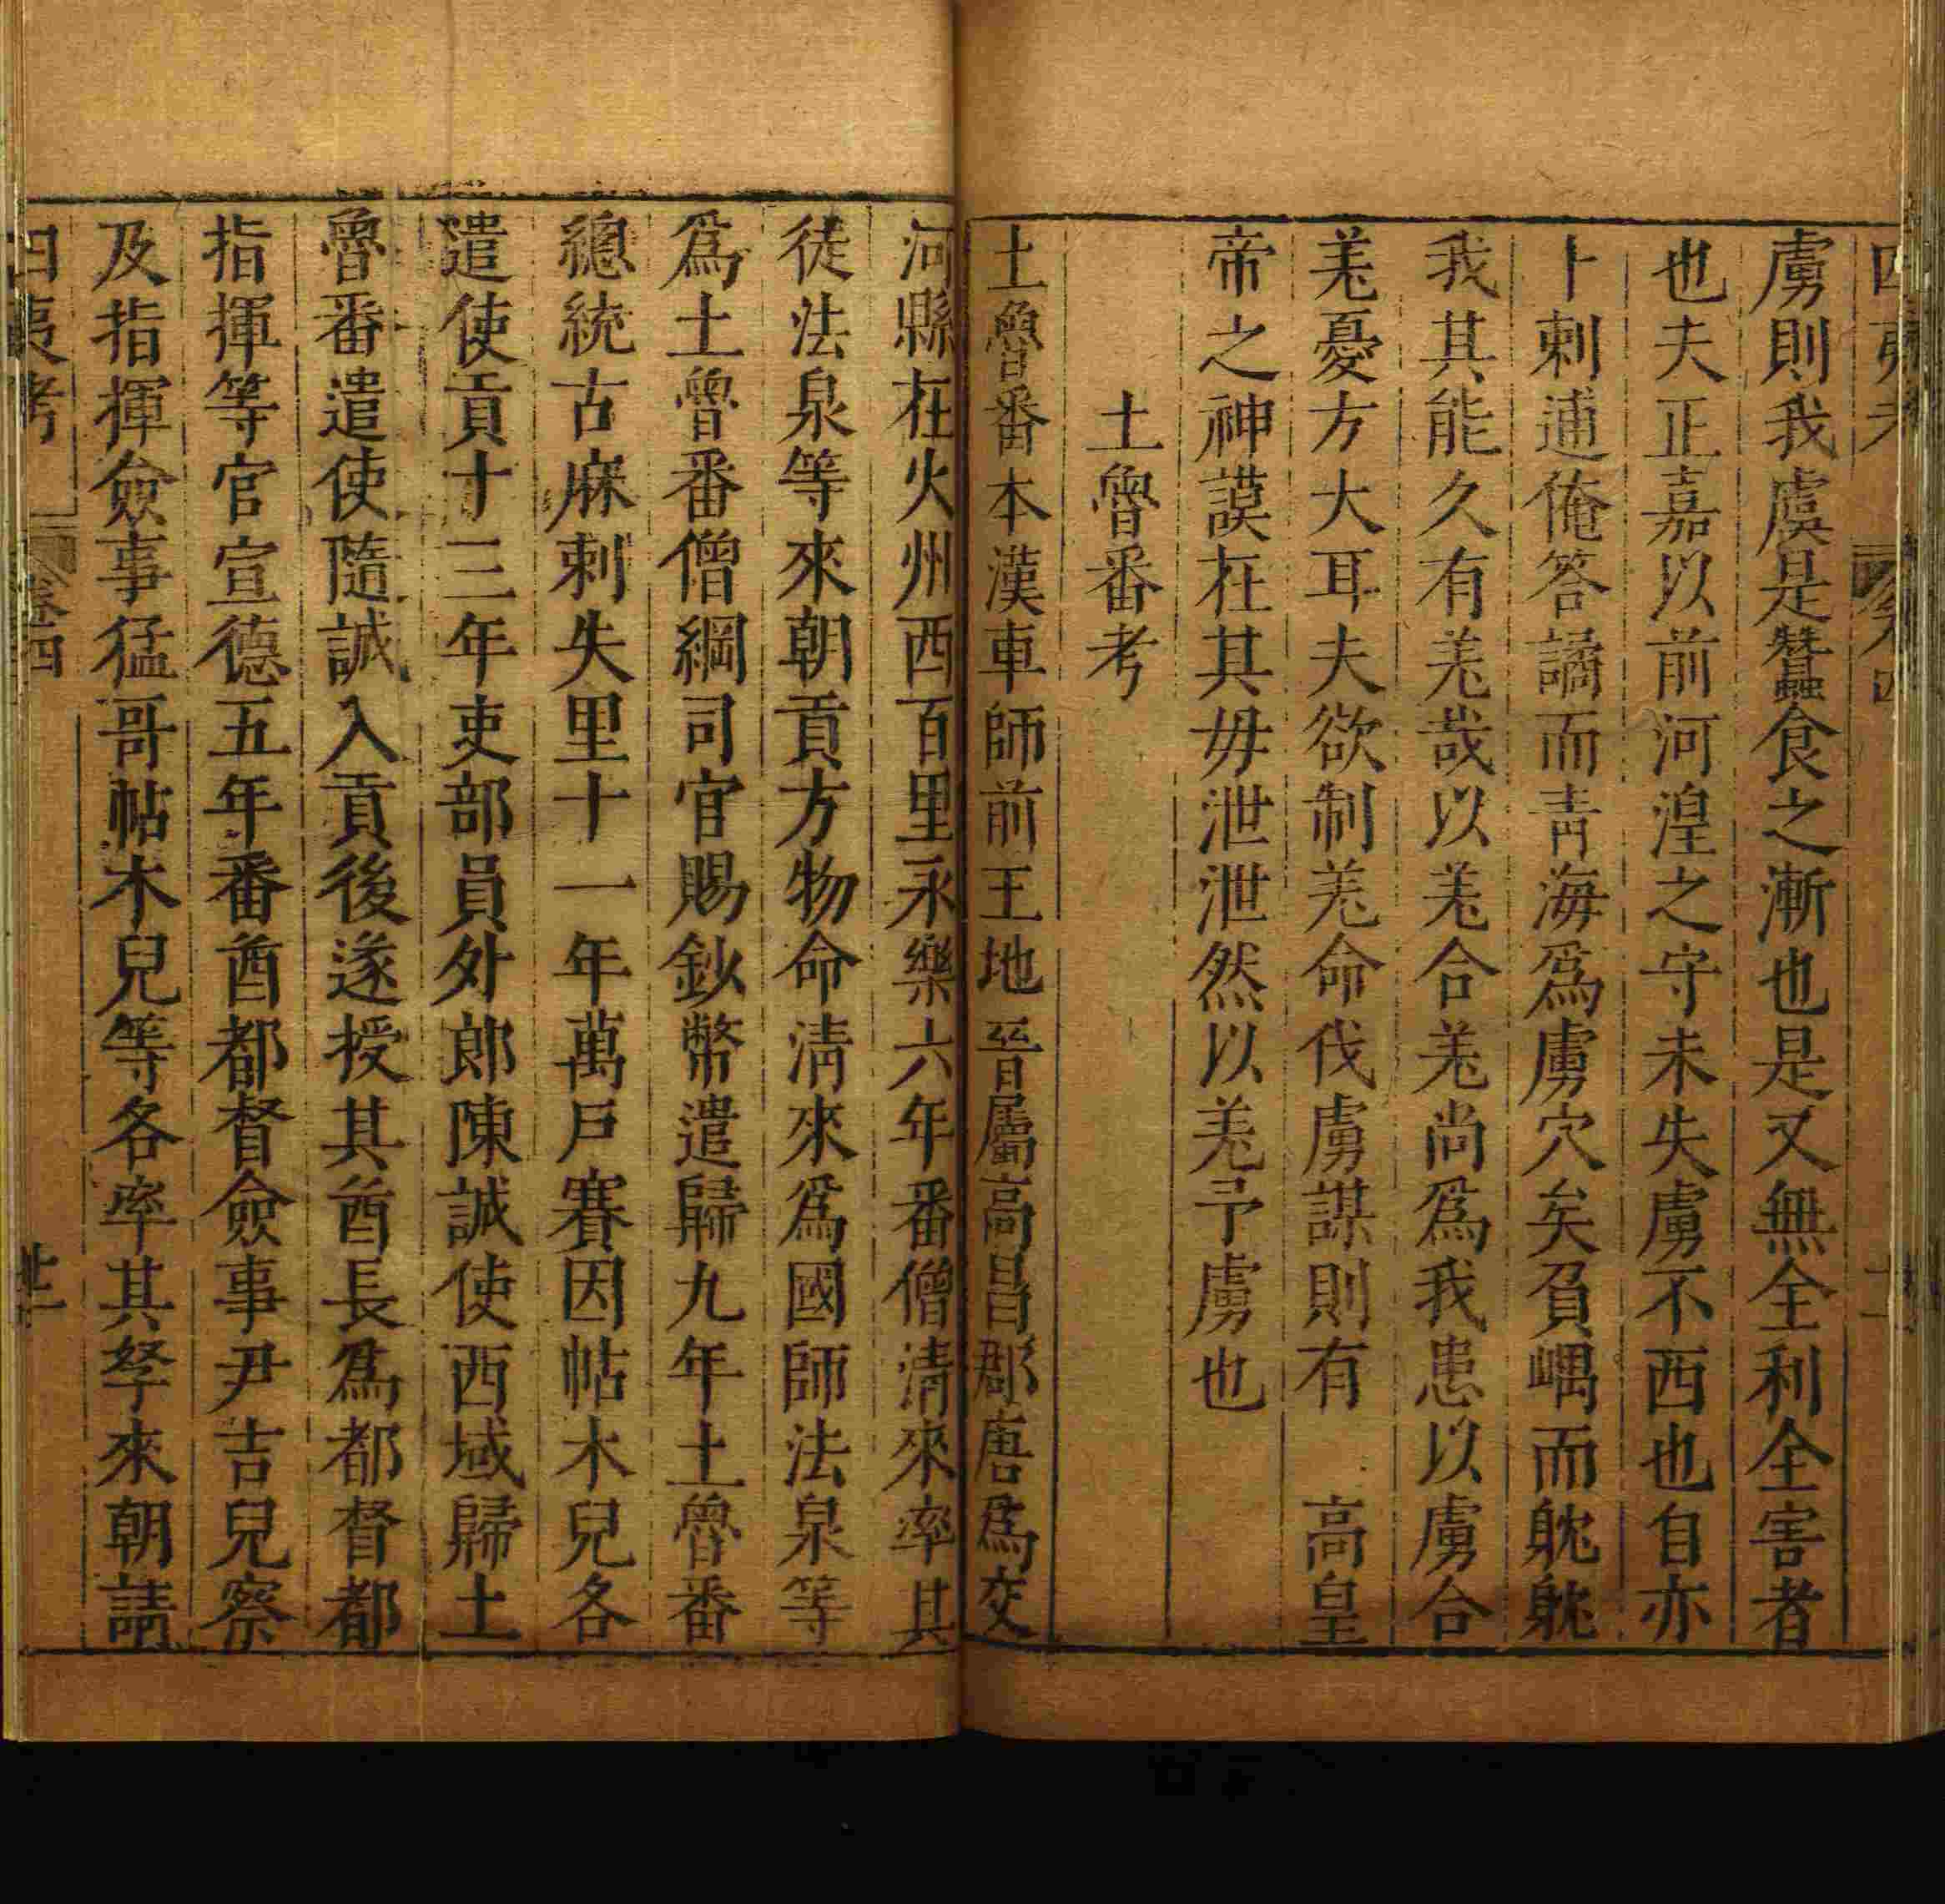 虜則我虞是蠶食之漸也是又無全利全害者
也夫正嘉以前河湟之守未失虜不西也自亦
卜剌逋俺答譎而青海爲虜穴矣負嵎而眈眈
我其能久有羌哉以羌合羌尚爲我患以虜合
羌憂方大耳夫欲制羌命伐虜謀則有 高皇
帝之神謨在其毋泄泄然以羌予虜也
土魯番考
土魯番本漢車師前王地晉屬高昌郡唐爲交
河縣在火州西百里永樂六年番僧清來率其
徒法泉等來朝貢方物命清來爲國師法泉等
爲土魯番僧綱司官賜鈔幣遣歸九年土魯番
總統古麻剌失里十一年萬戶賽因帖木兒各
遣使貢十三年吏部員外郎陳誠使西域歸土
魯番遣使隨誠入貢後遂授其酋長爲都督都
指揮等官宣德五年番酋都督僉事尹吉兒察
及指揮僉事猛哥帖木兒等各率其孥來朝請
四夷考 卷四 廿一